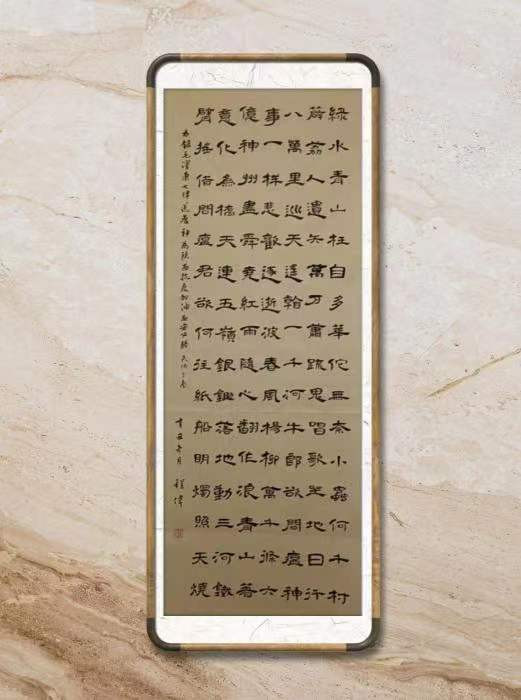 綠水青山枉自多華佗無奈小蟲何千村
薜荔人遺矢萬戶蕭疏鬼唱歌坐地日行
八萬里巡天遙看一千河牛郎欲問瘟神
事一樣悲歡逐逝波春風楊柳萬千條六
億神州盡舜堯紅雨隨心翻作浪青山著
意化為橋天連五嶺銀鋤落地動三河鐵
臂搖借問瘟君欲何往紙船明燭照天燒
右錄毛澤東七律送瘟神為陝西抗疫加油西安必勝
辛丑冬月 程偉